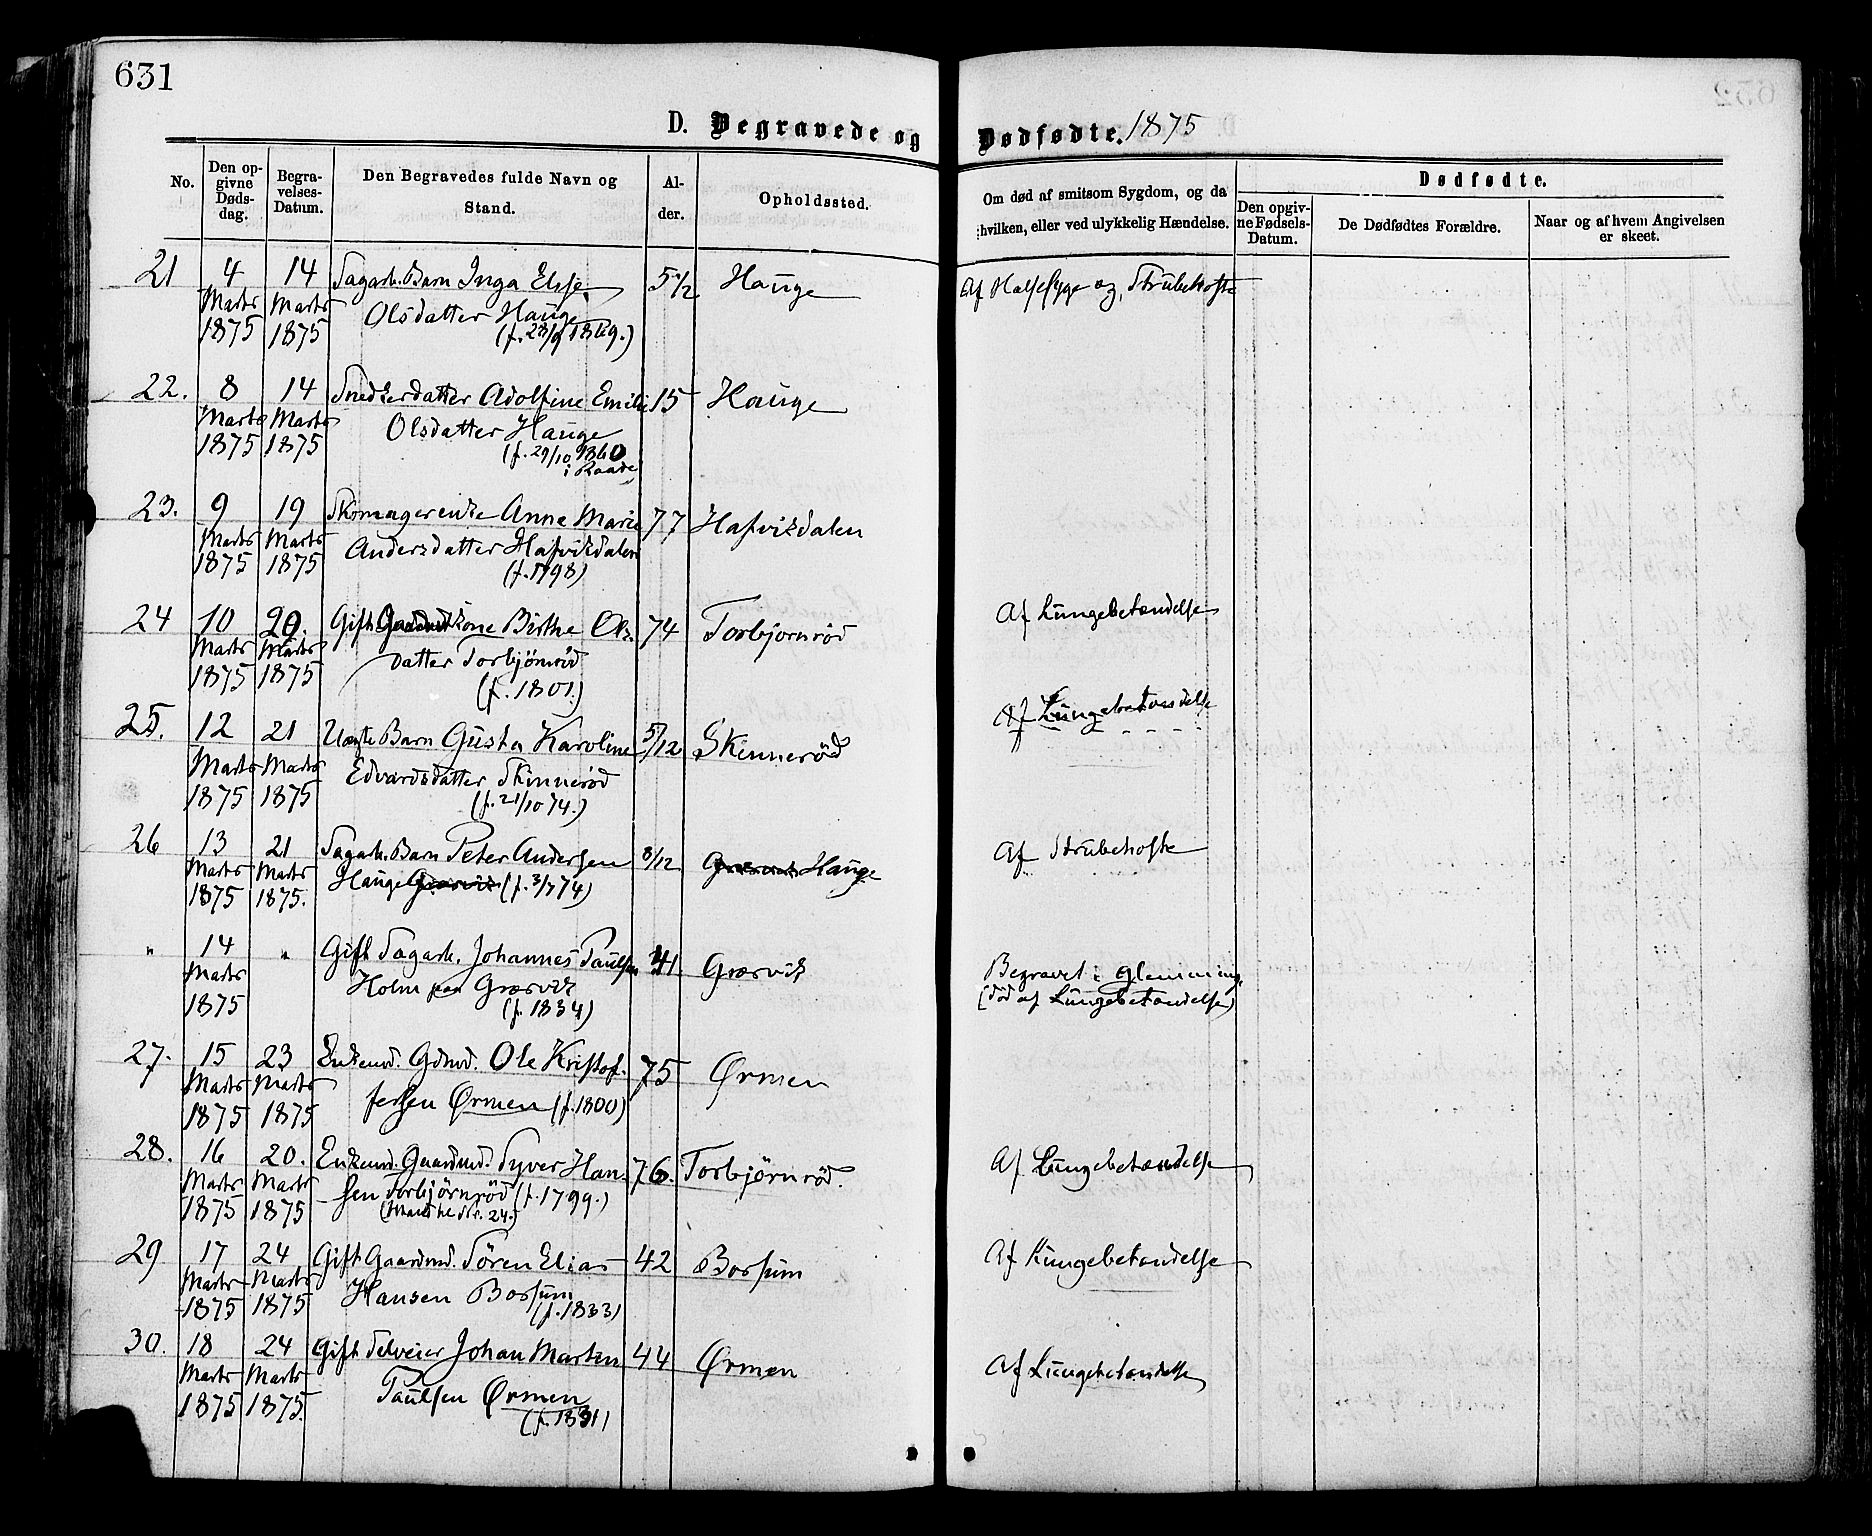 631
D. Begravede og Dødfødte. 1875
No.
Den opgivne Dødsdag.
Begravelses-Datum.
Den Begravedes fulde Navn og Stand.
Alder.
Opholdssted.
Om død af smitsom Sygdom, og da hvilken, eller ved ulykkelig Hændelse.
Dødfødte.
Den opgivne Fødsels-Datum.
De Dødfødtes Forældre.
Naar og af hvem Angivelsen er skeet.
21 4 14 Sagarb. Barn Inga Elise 5½ Hauge Af Halssyge og Strubehoste
Marts Marts Olsdatter Hauge
1875 1875 (f. 28/9 1869.)
22. 8 14 Snedkerdatter Adolfine Emilie 15 Hauge
Marts Marts Olsdatter Hauge
1875 1875 (f. 29/10 1860
i Raade)
23. 9 19 Skomagerenke Anne Marie 77 Hafvikdalen
Marts Marts Andersdatter Hafvikdalen
1875 1875 (f. 1798)
24 10 20. Gift kone Birthe Ols- 74 Torbjørnrød Af Lungebetændelse
Marts Marts datter Torbjörnröd
1875 1875 (f. 1801.)
25. 12 21 Uægte Barn Gusta Karoline 5/12 Skinnerød Af Lungebetændelse
Marts Marts Edvardsdatter Skinneröd
1875 1875 (f. 21/10 74.)
26 13 21 Sagarb. Barn Peter Andersen 8/12 Græsvik Hauge Af Strubehoste
Marts Marts Hauge Græsvik (f. 3/7 74)
1875 1875.
" 14 " Gift Sagarb. Johannes Paulsen 41 Græsvik Begravet i Glemminge
Marts Holm paa Græsvik (död af Lungebetændelse)
1875 (f. 1834)
27. 15 23 Enkemd. Gdmd. Ole Kristof- 75 Ørmen
Marts Marts fersen Ørmen (f. 1800)
1875 1875
28. 16 20. Enkemd. Gaardmd. Syver Han- 76. Torbjörnröd. Af Lungebetændelse
Marts Marts sen Torbjörnröd (f. 1799.)
1875 1875 (Mand til Nr. 24.)
29 17 24 Gift Gaardmd. Sören Elias 42 Borsum Af Lungebetændelse
Marts Marts Hansen Borsum
1875 1875 (f. 1833)
30. 18 24 Gift Selveier Johan Martin 44 Ørmen Af Lungebetændelse
Marts Marts Paulsen Ørmen
1875 1875. (f. 1831)